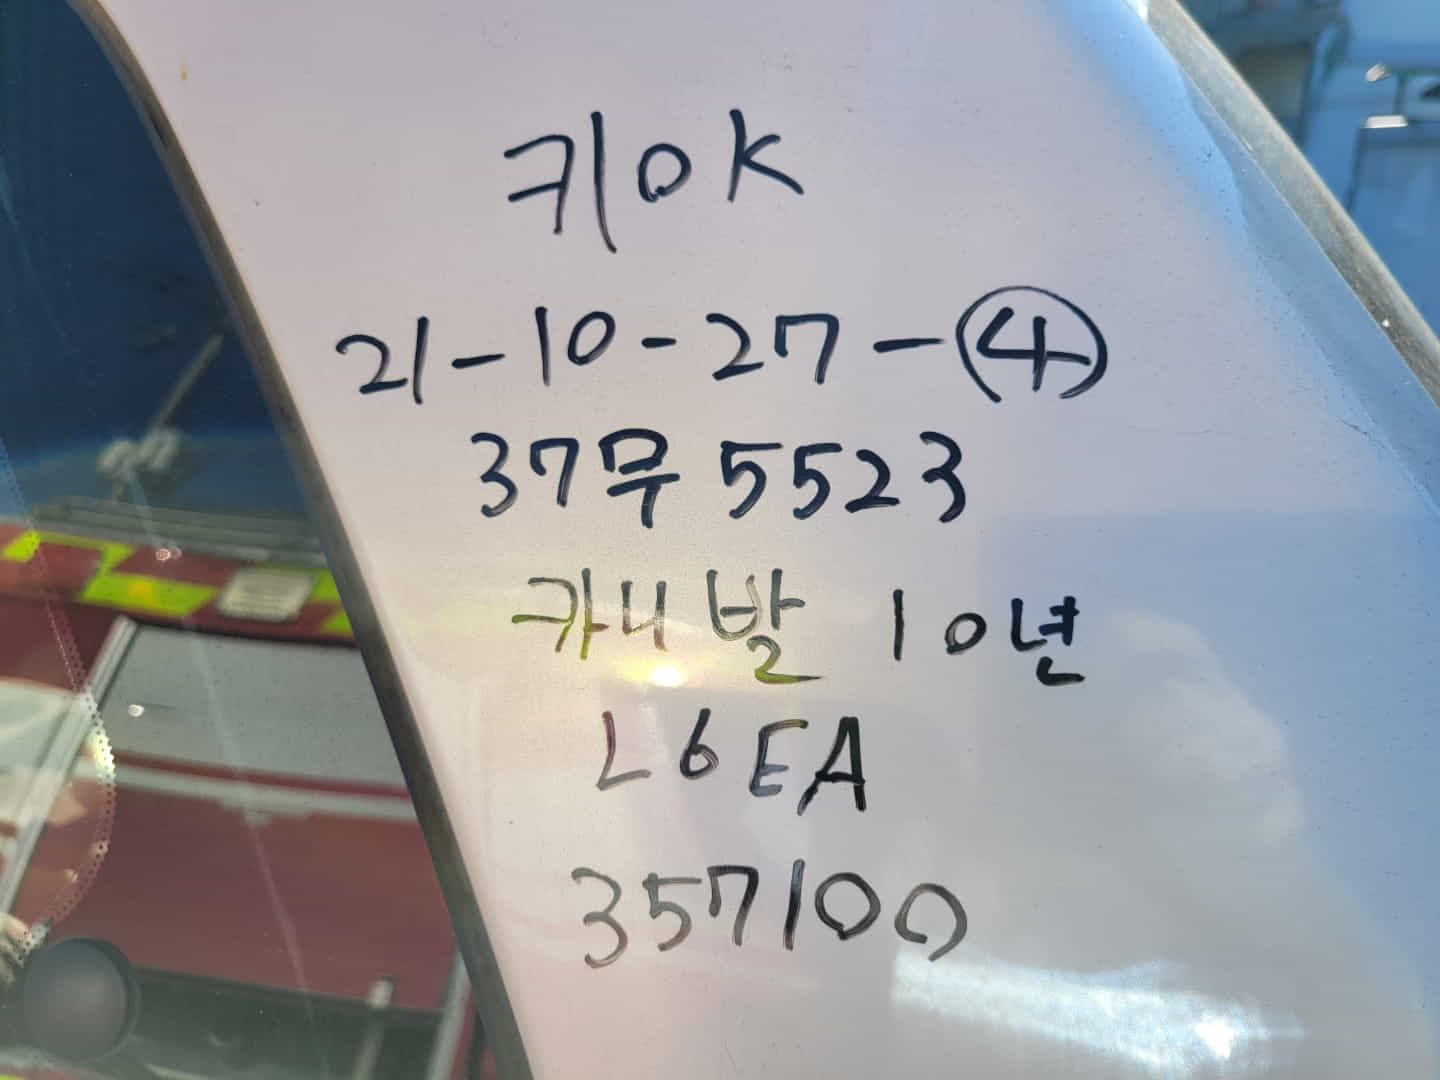 키OK
21-10-27-④
37무5523
카니발 10년
L6EA
357100